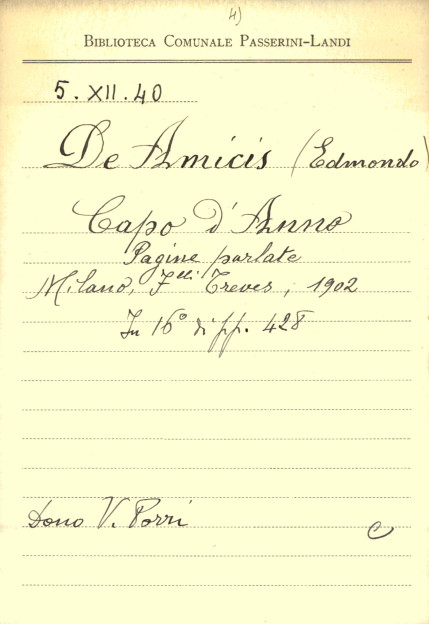 4)
BIBLIOTECA COMUNALE PASSERINI-LANDI
5.XII.40
De Amicis (Edmondo)
Capo d'Anno
Pagine parlate
Milano, F.lli Treves, 1902
In 16° di pp. 428
Dono V. Porri
C